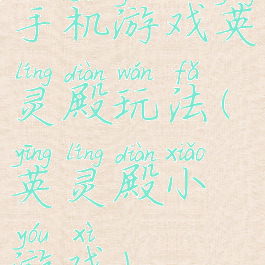 手机游戏英
líng diàn wán fǎ
灵殿玩法(
yīng líng diàn xiǎo
英灵殿小
yóu xì
游戏)